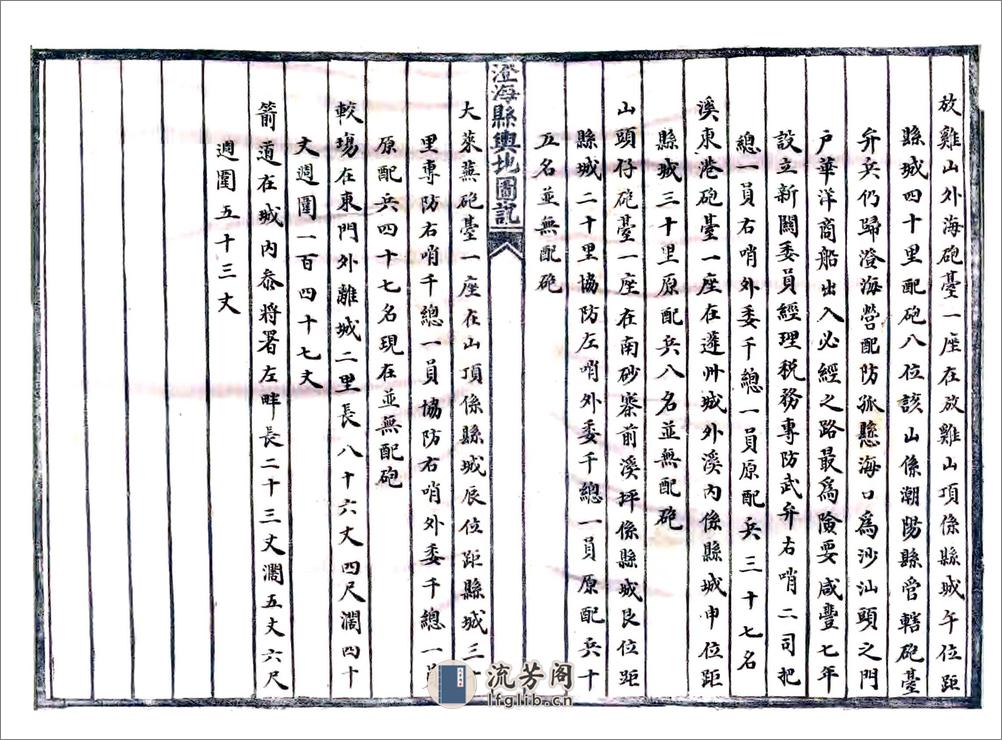 放雞山外海砲臺一座在放雞山頂係縣城午位距
縣城四十里配砲八位該山係潮陽縣管轄砲臺
弁兵仍歸澄海營配防孤懸海口為沙汕頭之門
戶華洋商船出入必經之路最為險要咸豐七年
設立新關委員經理稅務專防武弁右哨二司把
總一員右哨外委千總一員原配兵三十七名
溪東港砲臺一座在蓬州城外溪內係縣城申位距
縣城三十里原配兵八名並無配砲
山頭仔砲臺一座在南砂寨前溪坪係縣城艮位距
縣城二十里協防左哨外委千總一員原配兵十
五名並無配砲
澄海縣輿地圖說
大萊蕪砲臺一座在山頂係縣城辰位距縣城三十
里專防右哨千總一員協防右哨外委千總一員
原配兵四十七名現在並無配砲
較場在東門外離城二里長八十六丈四尺濶四十
丈週圍一百四十七丈
箭道在城內叅將署左畔長二十三丈濶五丈六尺
週圍五十三丈
流芳阁
lfglib.cn